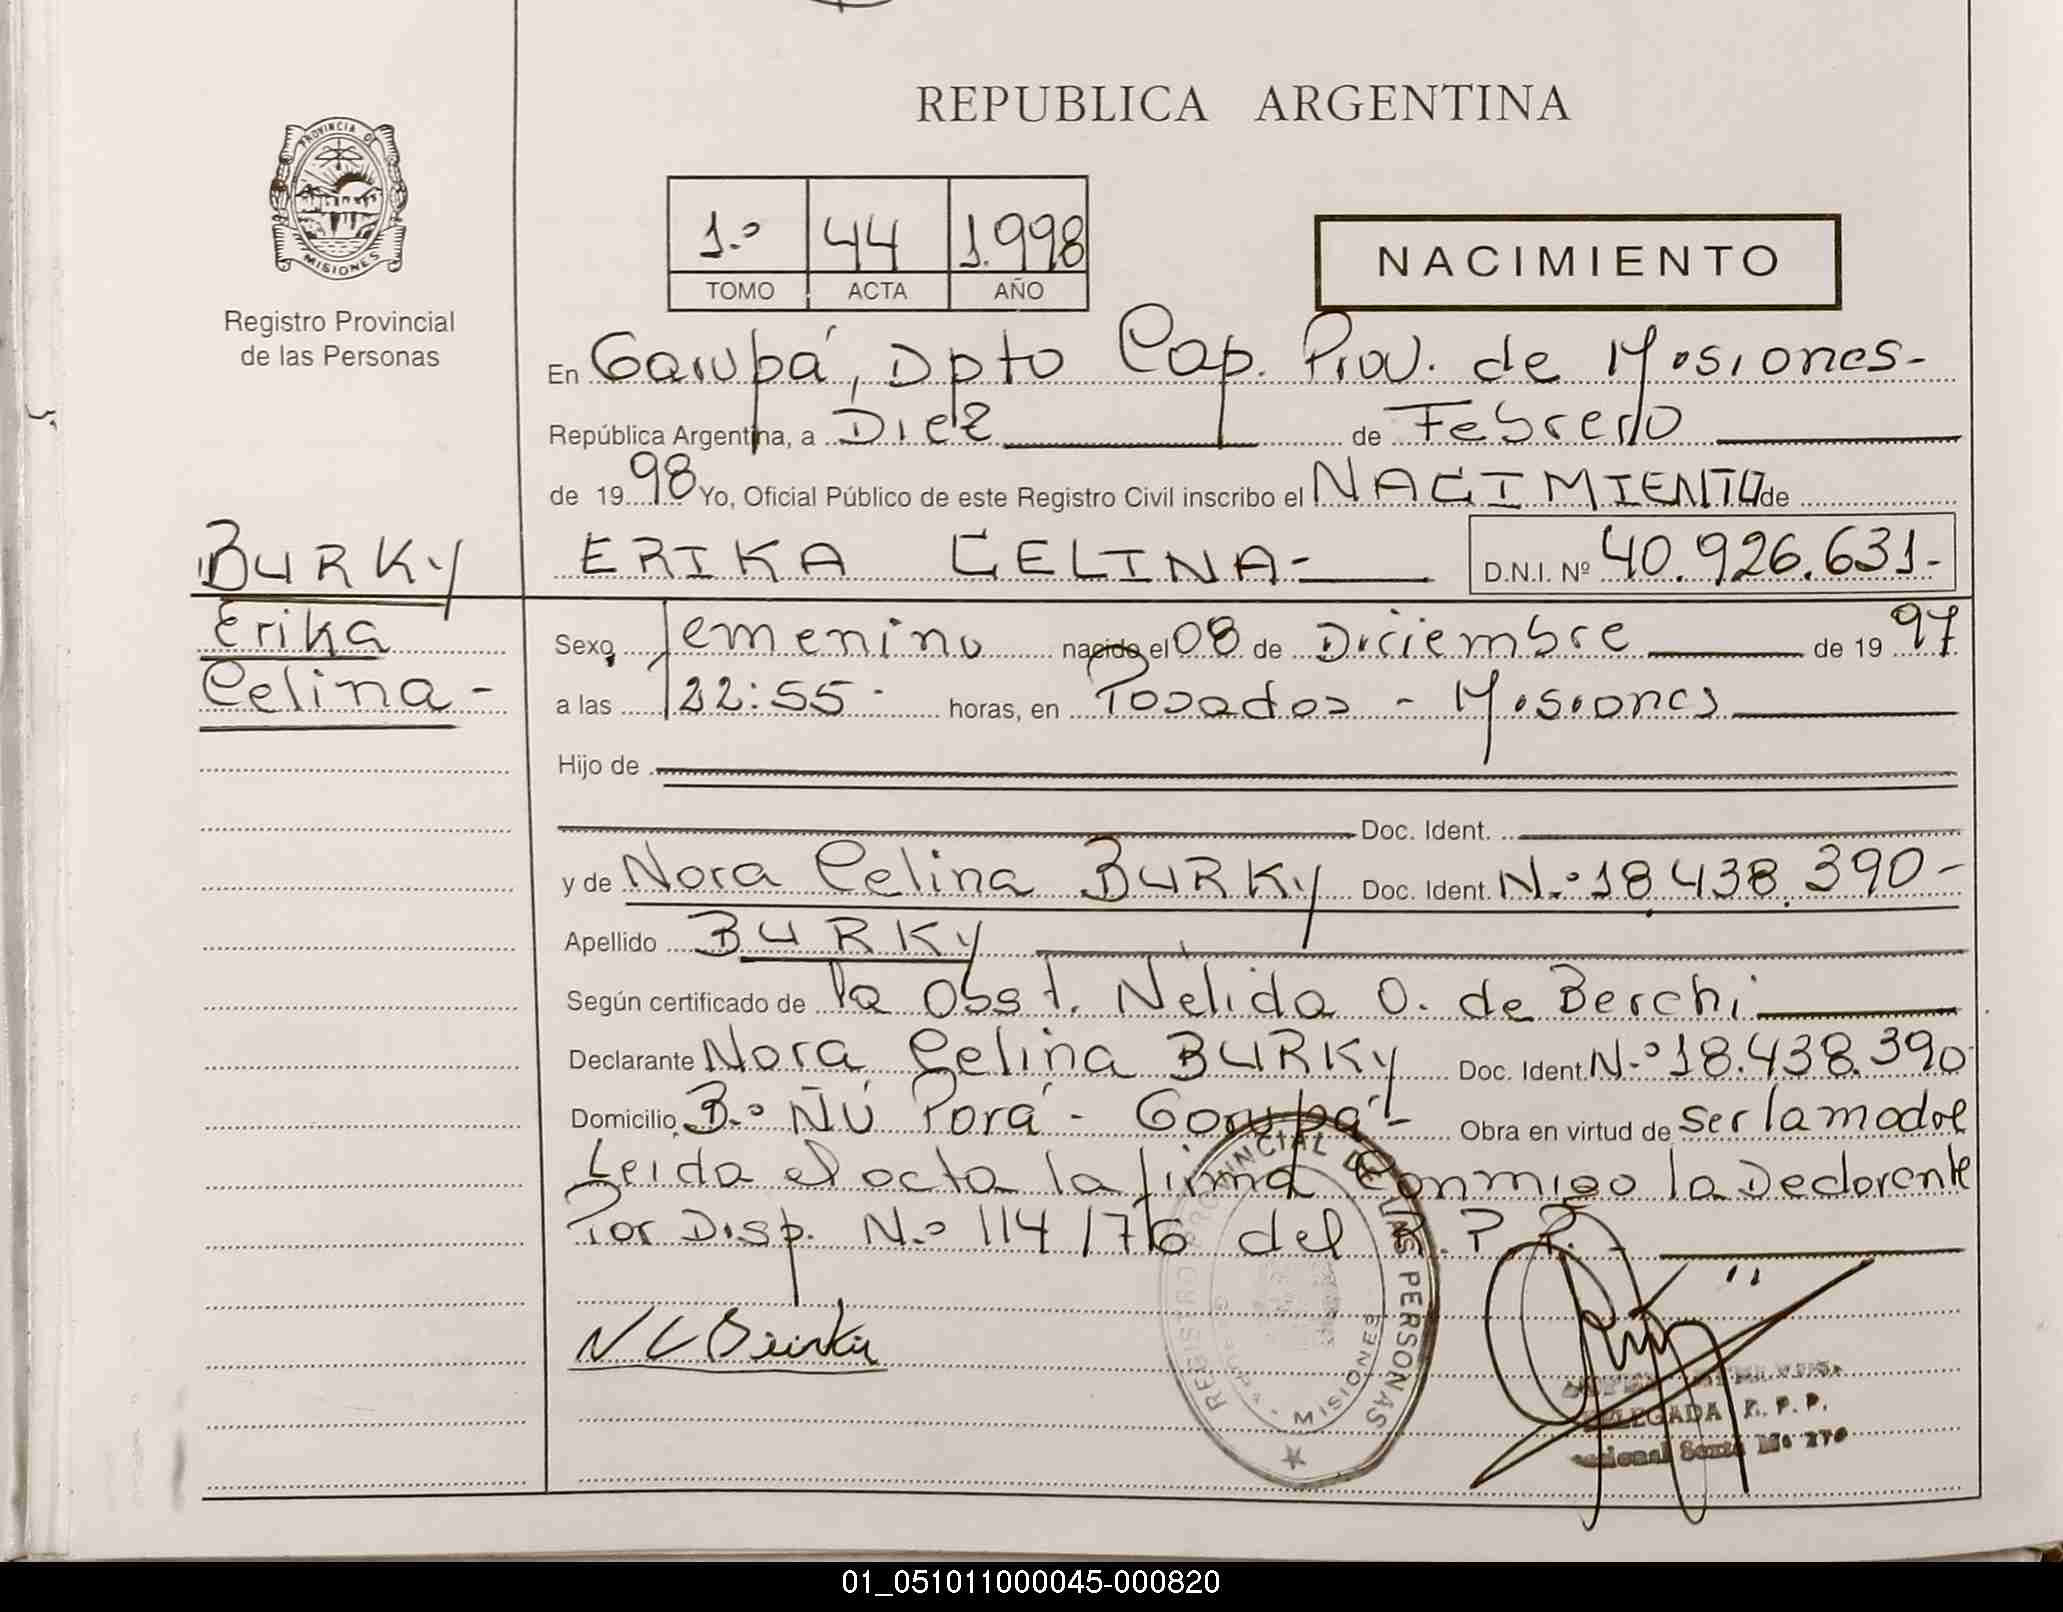 REPUBLICA ARGENTINA
PROVINCIA DE
MISIONES
Registro Provincial
de las Personas
1.º 44 1.998
TOMO ACTA AÑO
NACIMIENTO
En Garupá, Dpto Cap. Prov. de Misiones-
República Argentina, a Diez de Febrero
de 1998 Yo, Oficial Público de este Registro Civil inscribo el NACIMIENTO de
BURKY ERIKA CELINA- D.N.I. Nº 40.926.631.-
Erika
Celina-
Sexo femenino nacido el 08 de Diciembre de 1997
a las 22:55 horas, en Posadas - Misiones
Hijo de
Doc. Ident.
y de Nora Celina BURKY Doc. Ident. N.º 18.438.390-
Apellido BURKY
Según certificado de la Obst. Nélida O. de Berchi
Declarante Nora Celina BURKY Doc. Ident. N.º 18.438.390
Domicilio B.º Ñú Porá - Garupá- Obra en virtud de ser la madre
Leida el acta la firma Conmigo la Declarante
Por Disp. N.º 114/76 del R.P.P.-
REGISTRO PROVINCIAL DE LAS PERSONAS
MISIONES
DELEGADA R.P.P.
01_051011000045-000820